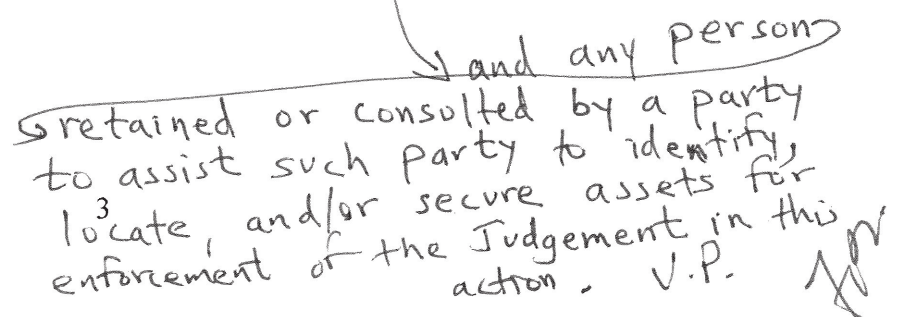 and any person
retained or consulted by a party
to assist such party to identify,
3
locate, and/or secure assets for
enforcement of the Judgement in this
action. V.P.